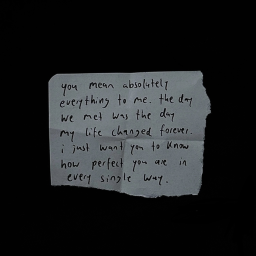 you mean absolutely
everything to me. the day
we met was the day
my life changed forever.
i just want you to know
how perfect you are in
every single way.